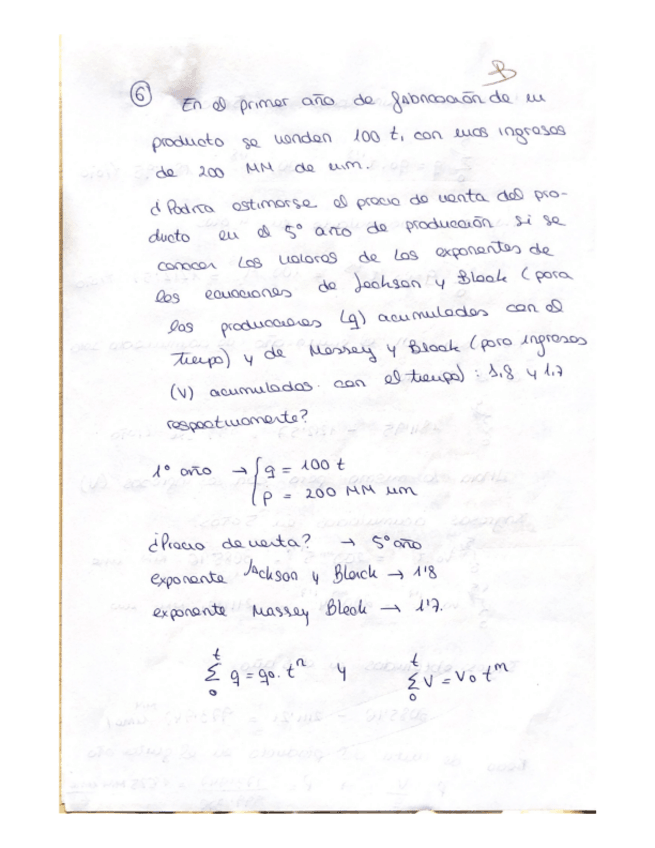 B
6 En el primer año de fabricación de un
producto se venden 100 t, con unos ingresos
de 200 MM de um.
¿Podría estimarse el precio de venta del pro-
ducto en el 5º año de producción si se
conocen los valores de los exponentes de
las ecuaciones de Jackson y Black (para
las producciones (q) acumuladas con el
tiempo) y de Massey y Black (para ingresos
(V) acumulados con el tiempo): 1,8 y 1,7
respectivamente?
1º año → { q = 100 t
p = 200 MM um
¿Precio de venta? → 5º año
exponente Jackson y Black → 1'8
exponente Massey Black → 1'7.
t t
Σ q = q₀ · tⁿ y Σ V = V₀ tᵐ
0 0